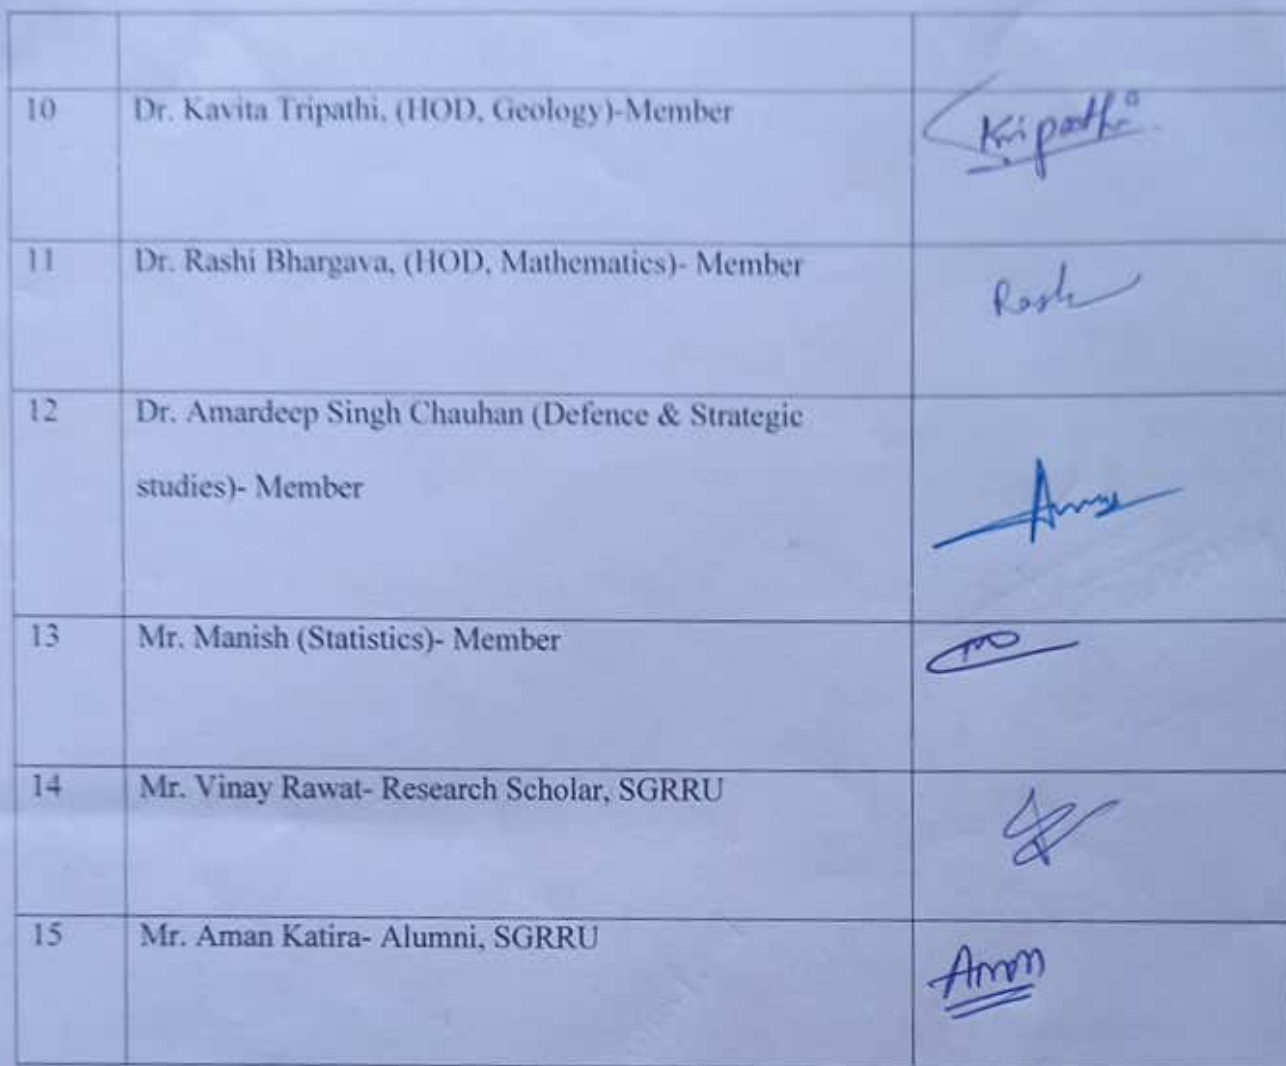 10 Dr. Kavita Tripathi, (HOD, Geology)-Member Kripathi
11 Dr. Rashi Bhargava, (HOD, Mathematics)- Member Rashi
12 Dr. Amardeep Singh Chauhan (Defence & Strategic
studies)- Member
13 Mr. Manish (Statistics)- Member
14 Mr. Vinay Rawat- Research Scholar, SGRRU
15 Mr. Aman Katira- Alumni, SGRRU Aman